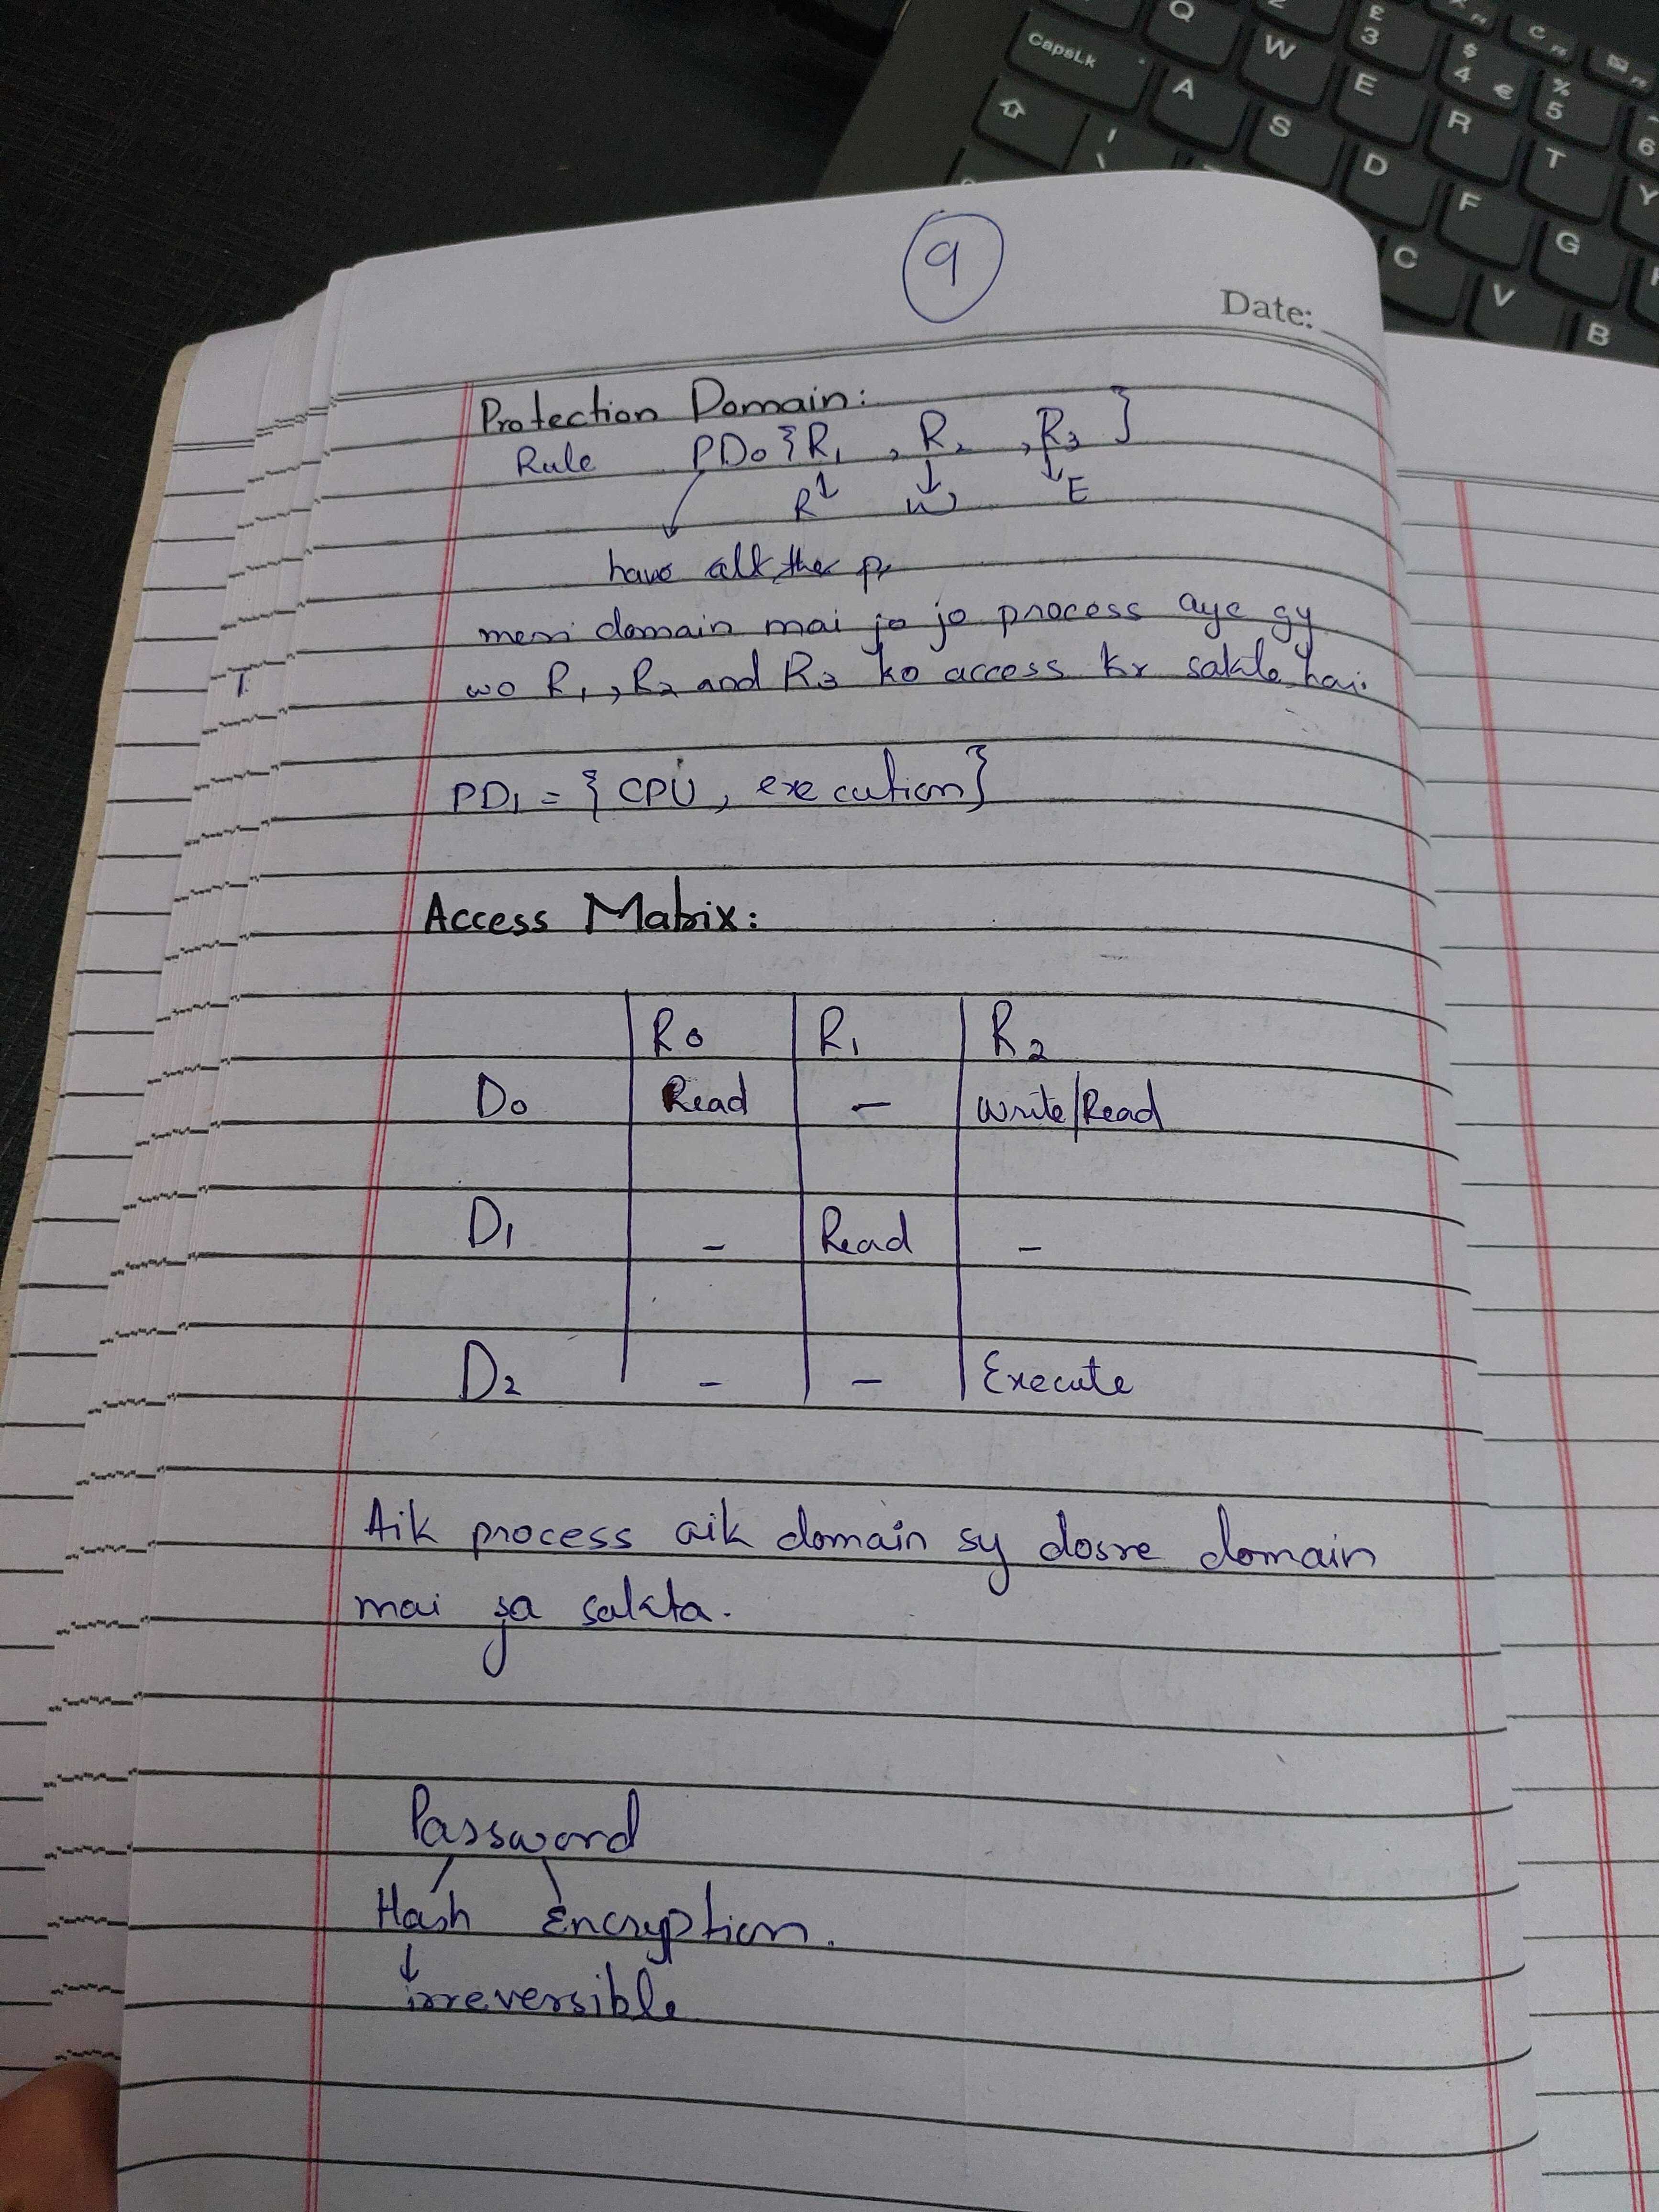 9
Date:
Protection Domain:
Rule PD0 {R1, R2, R3}
R W E
have all the pr
meri domain mai jo jo process aye gy
wo R1, R2 and R3 ko access kr sakte hai.
PD1 = {CPU, execution}
Access Matrix:
R0 R1 R2
D0 Read - Write/Read
D1 - Read -
D2 - - Execute
Aik process aik domain sy dosre domain
mai ja sakta.
Password
Hash Encryption.
irreversible
CapsLk
Q W E R T Y
A S D F G
C V B
£ 3
$ 4 €
% 5
6